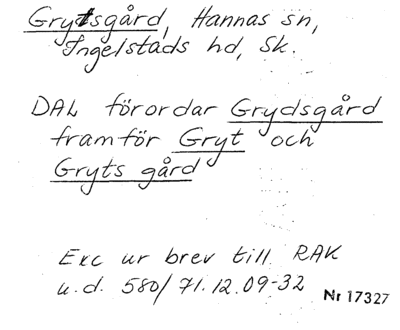 Grytsgård, Hannas sn,
Ingelstads hd, Sk.
DAL förordar Grydsgård
framför Gryt och
Gryts gård
Exc ur brev till RAK
u.d. 580/71.12.09-32
Nr 17327